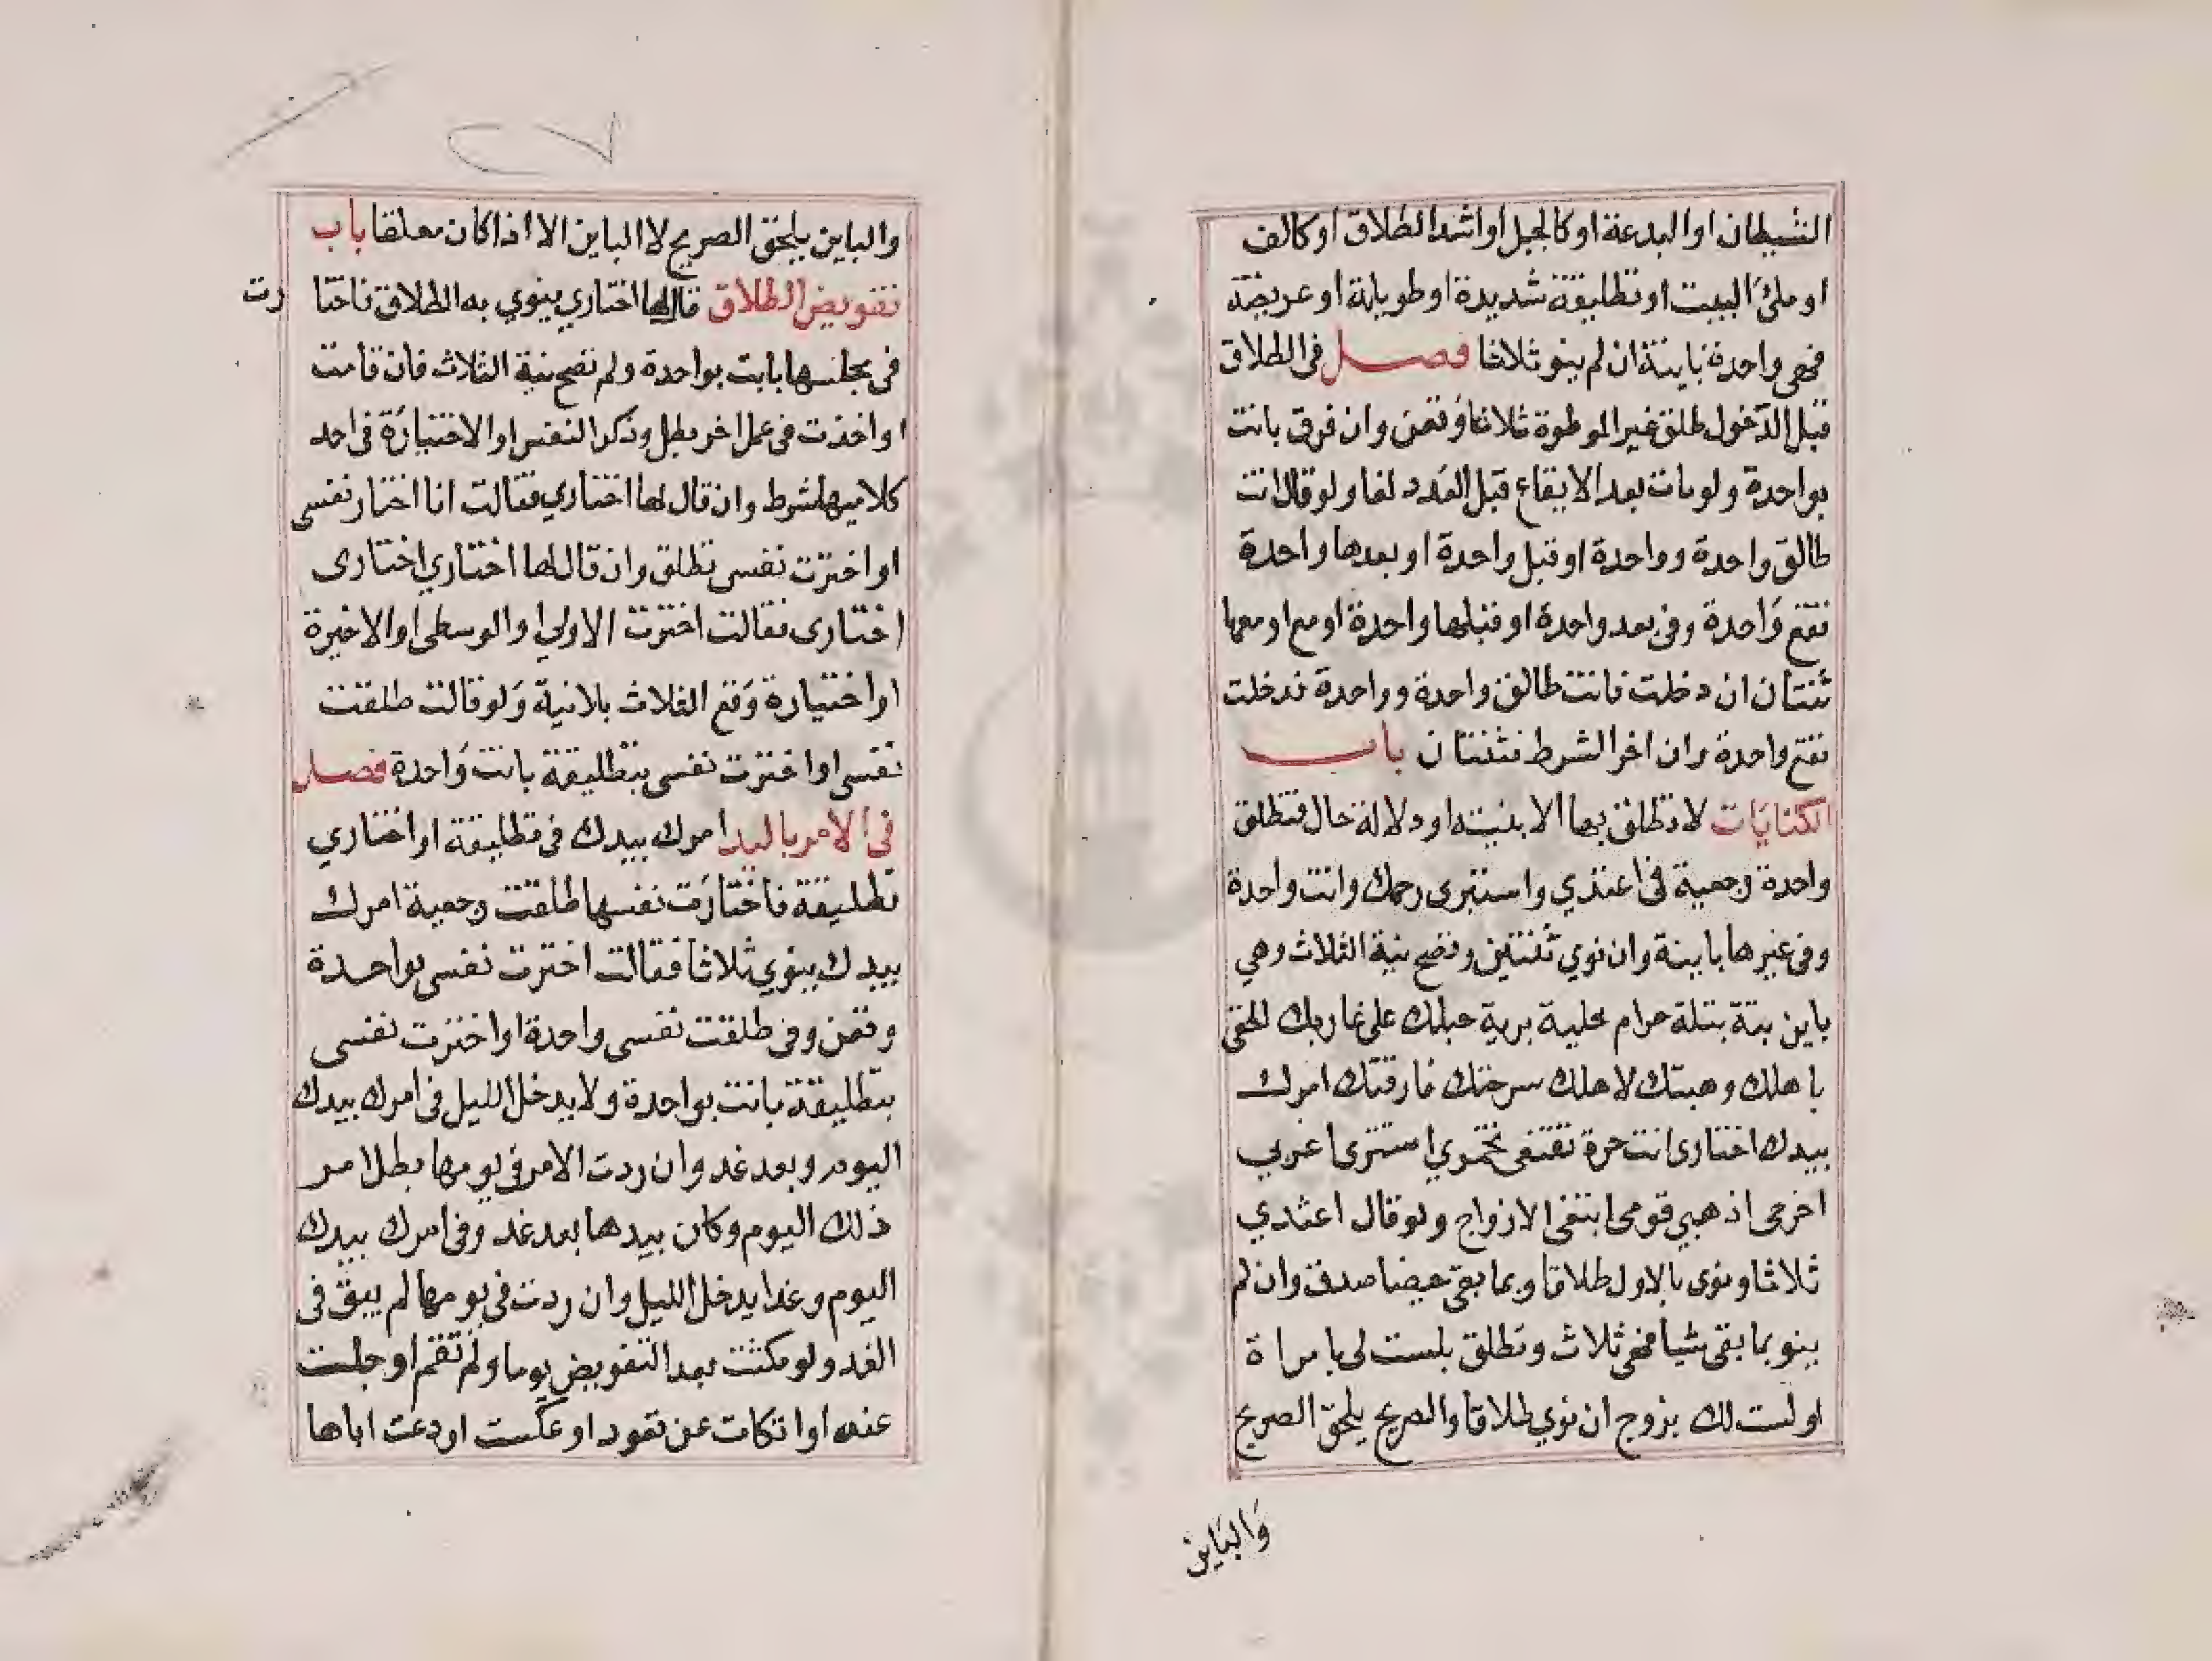 الشيطان او البدعة او كالجبل او اشد الطلاق او كالف
او ملئ البيت او تطليقة شديدة او طويلة او عريضة
فهى واحدة باينة ان لم ينو ثلاثا فصل فى الطلاق
قبل الدخول طلق غير الموطوة ثلاثا وقعن وان فرق بانت
بواحدة ولو مات بعد الايقاع قبل العدد لغا ولو قال انت
طالق واحدة وواحدة او قبل واحدة او بعدها واحدة
تقع واحدة وفى بعد واحدة او قبلها واحدة او مع او معها
ثنتان ان دخلت فانت طالق واحدة وواحدة فدخلت
تقع واحدة وان اخر الشرط فثنتان باب
الكنايات لا تطلق بها الا بنيته او دلالة حال فتطلق
واحدة رجعية فى اعتدي واستبرى رحمك وانت واحدة
وفى غيرها باينة وان نوي ثنتين وتصح نية الثلاث وهي
باين بتة بتلة حرام خلية برية حبلك على غاربك الحقى
باهلك وهبتك لاهلك سرحتك فارقتك امرك
بيدك اختارى انت حرة تقنعى تخمري استترى اغربي
اخرجى اذهبي قومى ابتغى الازواج ولو قال اعتدي
ثلاثا ونوى بالاول طلاقا وبما بقى حيضا صدق وان لم
ينو بما بقى شيا فهى ثلاث وتطلق بلست لى بامراة
او لست لك بزوج ان نوي طلاقا والصريح يلحق الصريح
والباين
والباين يلحق الصريح لا الباين الا اذا كان معلقا باب
تفويض الطلاق قال لها اختاري ينوي به الطلاق فاختارت
فى مجلسها بانت بواحدة ولم تصح نية الثلاث فان قامت
او اخذت فى عمل اخر بطل وذكر النفس او الاختيارة فى احد
كلاميهما شرط وان قال لها اختاري فقالت انا اختار نفسى
او اخترت نفسى تطلق وان قال لها اختاري اختارى
اختارى فقالت اخترت الاولي او الوسطى او الاخيرة
او اختيارة وقع الثلاث بلا نية ولو قالت طلقت
نفسى او اخترت نفسى بتطليقة بانت واحدة فصل
فى الامر باليد امرك بيدك فى تطليقة او اختاري
تطليقة فاختارت نفسها طلقت رجعية امرك
بيدك ينوي ثلاثا فقالت اخترت نفسى بواحدة
وقعن وفى طلقت نفسى واحدة او اخترت نفسى
بتطليقة بانت بواحدة ولا يدخل الليل فى امرك بيدك
اليوم وبعد غد وان ردت الامر فى يومها بطل امر
ذلك اليوم وكان بيدها بعد غد وفى امرك بيدك
اليوم وغدا يدخل الليل وان ردت فى يومها لم يبق فى
الغد ولو مكثت بعد التفويض يوما ولم تقم او جلست
عنه او اتكات عن قعود او عكست او دعت اباها